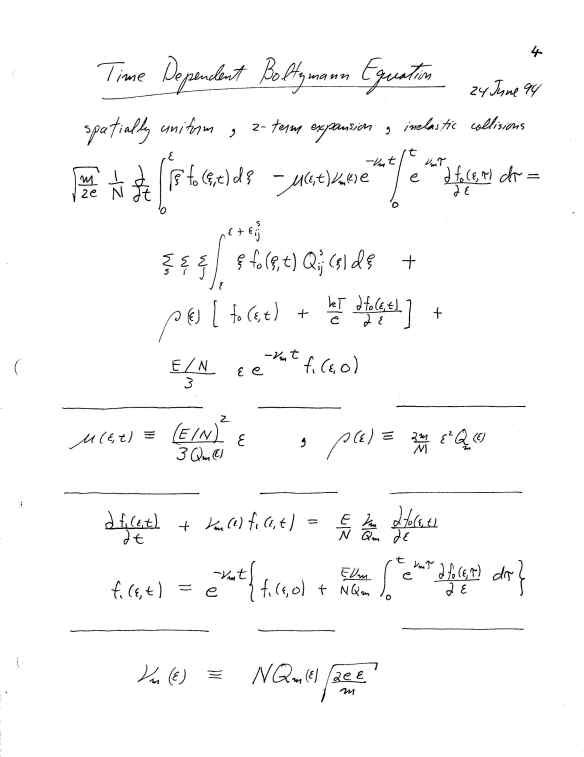 4
Time Dependent Boltzmann Equation
24 June 94
spatially uniform , 2-term expansion , inelastic collisions
√(m/2e) 1/N ∂/∂t ∫₀^ε √ξ f₀(ξ,t) dξ − μ(ε,t) ν_m(ε) e^(−ν_m t) ∫₀^t e^(ν_m τ) ∂f₀(ε,τ)/∂ε dτ =
Σ_s Σ_i Σ_j ∫_ε^(ε + ε_ij^s) ξ f₀(ξ,t) Q_ij^s (ξ) dξ +
ρ(ε) [ f₀(ε,t) + kT/e ∂f₀(ε,t)/∂ε ] +
E/N / 3 ε e^(−ν_m t) f₁(ε,0)
μ(ε,t) ≡ (E/N)² / 3Q_m(ε) ε , ρ(ε) ≡ 2m/M ε² Q_m(ε)
∂f₁(ε,t)/∂t + ν_m(ε) f₁(ε,t) = E/N ν_m/Q_m ∂f₀(ε,t)/∂ε
f₁(ε,t) = e^(−ν_m t) { f₁(ε,0) + Eν_m/NQ_m ∫₀^t e^(ν_m τ) ∂f₀(ε,τ)/∂ε dτ }
ν_m(ε) ≡ NQ_m(ε) √(2eε/m)